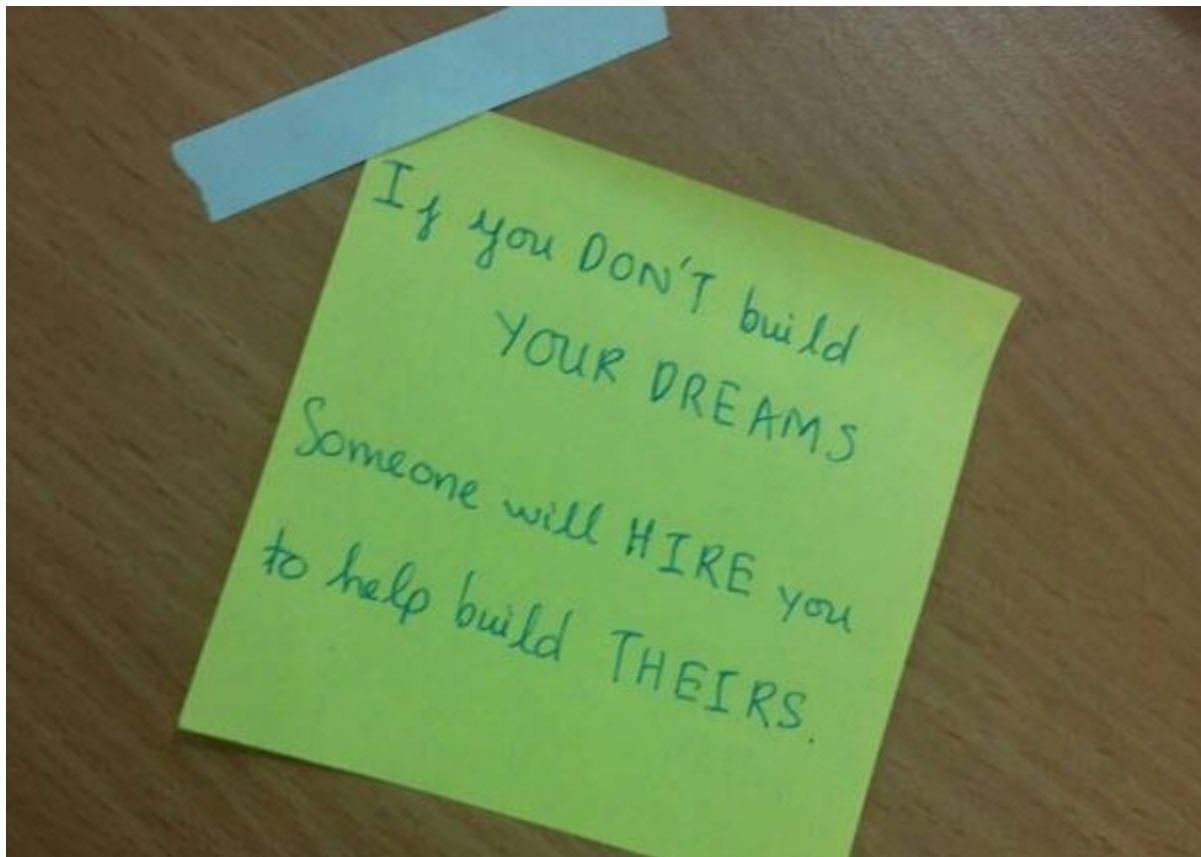 If you DON'T build
YOUR DREAMS
Someone will HIRE you
to help build THEIRS.